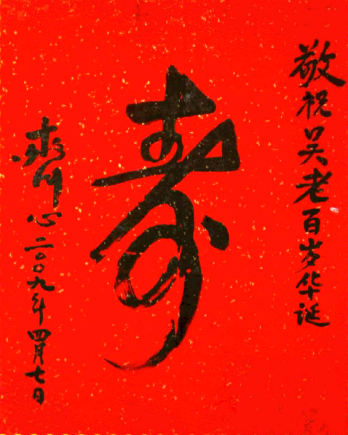 敬祝吴老百岁华诞
寿
心二〇〇九年四月七日